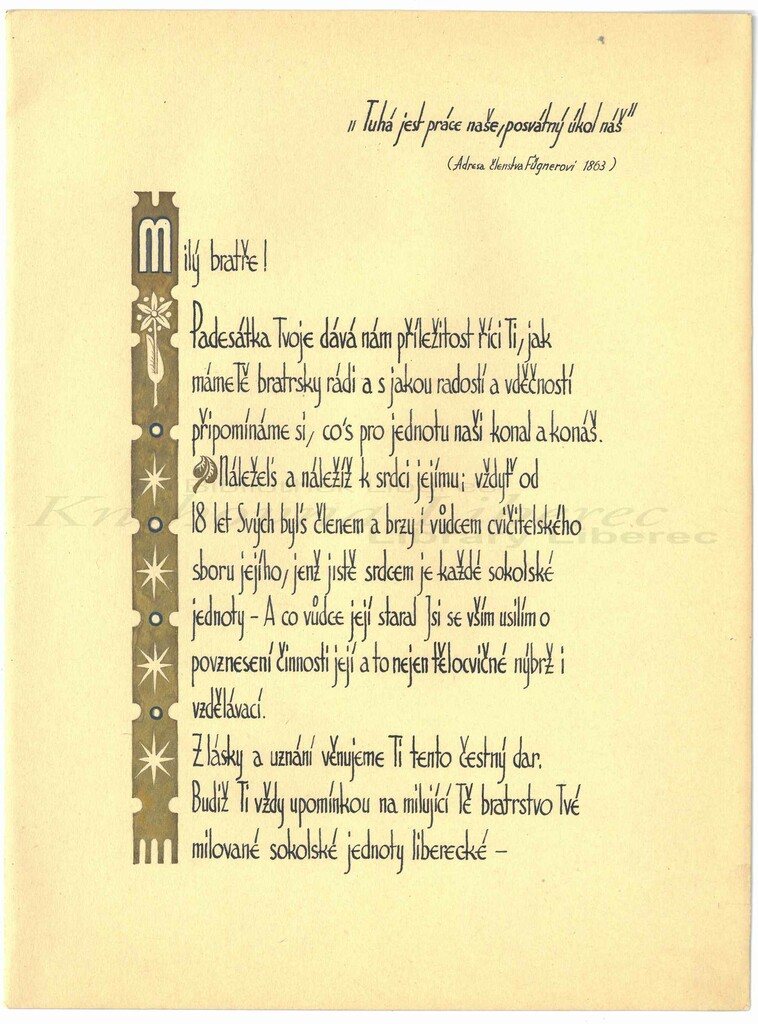 „Tuhá jest práce naše, posvátný úkol náš"
(Adresa členstva Fügnerovi 1863)
Milý bratře!
Padesátka Tvoje dává nám příležitost říci Ti, jak
máme Tě bratrsky rádi a s jakou radostí a vděčností
připomínáme si, co's pro jednotu naši konal a konáš.
Náležels a náležíž k srdci jejímu; vždyť od
18 let Svých byl's členem a brzy i vůdcem cvičitelského
sboru jejího, jenž jistě srdcem je každé sokolské
jednoty – A co vůdce její staral Jsi se vším usilím o
povznesení činnosti její a to nejen tělocvičné nýbrž i
vzdělávací.
Z lásky a uznání věnujeme Ti tento čestný dar.
Budiž Ti vždy upomínkou na milující Tě bratrstvo Tvé
milované sokolské jednoty liberecké –
Knihovna Liberec
Library Liberec